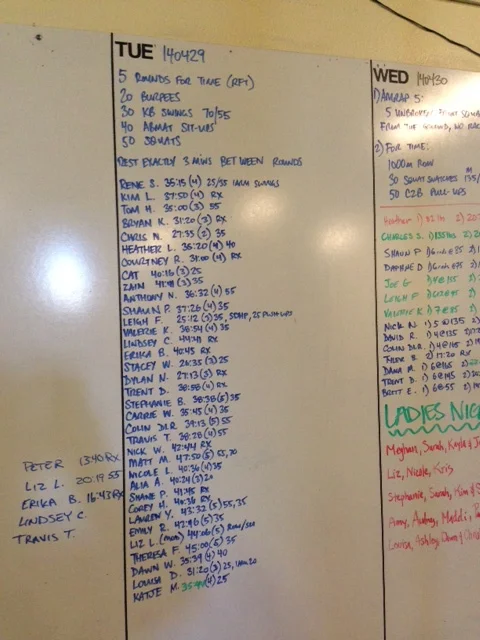 TUE 140429
5 ROUNDS FOR TIME (RFT)
20 BURPEES
30 KB SWINGS 70/55
40 ABMAT SIT-UPS
50 SQUATS
REST EXACTLY 3 MINS BETWEEN ROUNDS
RENE S. 35:15 (4) 25/55 1ARM SWINGS
KIM L. 37:50 (4) RX
TOM H. 35:00 (3) 55
BRYAN K. 31:20 (3) RX
CHRIS N. 27:35 (2) 35
HEATHER L. 36:20 (4) 40
COURTNEY R. 31:00 (4) RX
CAT 40:16 (3) 25
ZAIN 41:18 (3) 35
ANTHONY N. 36:32 (4) 55
SHAUN P. 37:26 (4) 35
LEIGH F. 25:12 (3) 35, 25 PUSH UPS
VALERIE K. 38:54 (4) 35
LINDSEY C. 44:21 RX
ERIKA B. 40:45 RX
STACEY W. 26:35 (3) 25
DYLAN N. 27:13 (3) RX
TRENT D. 38:58 (4) RX
STEPHANIE B. 38:38 (5) 35
CARRIE W. 35:45 (4) 35
COLIN DLR 39:13 (5) 55
TRAVIS T. 38:28 (4) 55
NICK W. 42:44 RX
MATT M. 47:50 (5) 55, 70
NICOLE L. 40:36 (4) 35
ALIA A. 40:24 (3) 20
SHANE P. 41:45 RX
COREY H. 40:36 RX
LAUREN Y. 43:32 (5) 55, 35
EMILY R. 42:46 (5) 35
LIZ L. (MON) 44:06 (5)
THERESA F. 45:00 (5) 35
DAWN W. 35:39 (4) 40
LOUISA D. 31:20 (3) 25,
KATJE M. 35:44 (4) 25
PETER 13:40 RX
LIZ L. 20:19 55
ERIKA B. 16:43 RX
LINDSEY C.
TRAVIS T.
WED 140430
1) AMRAP 5:
5 UNBROKEN
FROM THE GROUND, NO
2) FOR TIME:
1000M ROW
30 SQUAT SNATCHES 135/
50 C2B PULL-UPS
Heather 1)
CHARLES S. 1) 135lbs 2)
SHAUN P 2)
DAPHNE D 2)
JOE G
LEIGH F
VALERIE K 2)
NICK N. 1) 5 @ 135 2)
DAVID R. 1) 4@135 2)
COLIN DLR. 1) 4@145
2) 17:20 RX
DANA M. 1) 6@65 2)
TRENT D. 1) 6@145 2)
BRITT E. 1) 6@55 2)
LADIES
Meghan, Sarah, Kayla &
Liz, Nicole, Kris
Stephanie, Sarah, Kim &
Amy, Audrey,
Louisa, Ashley,